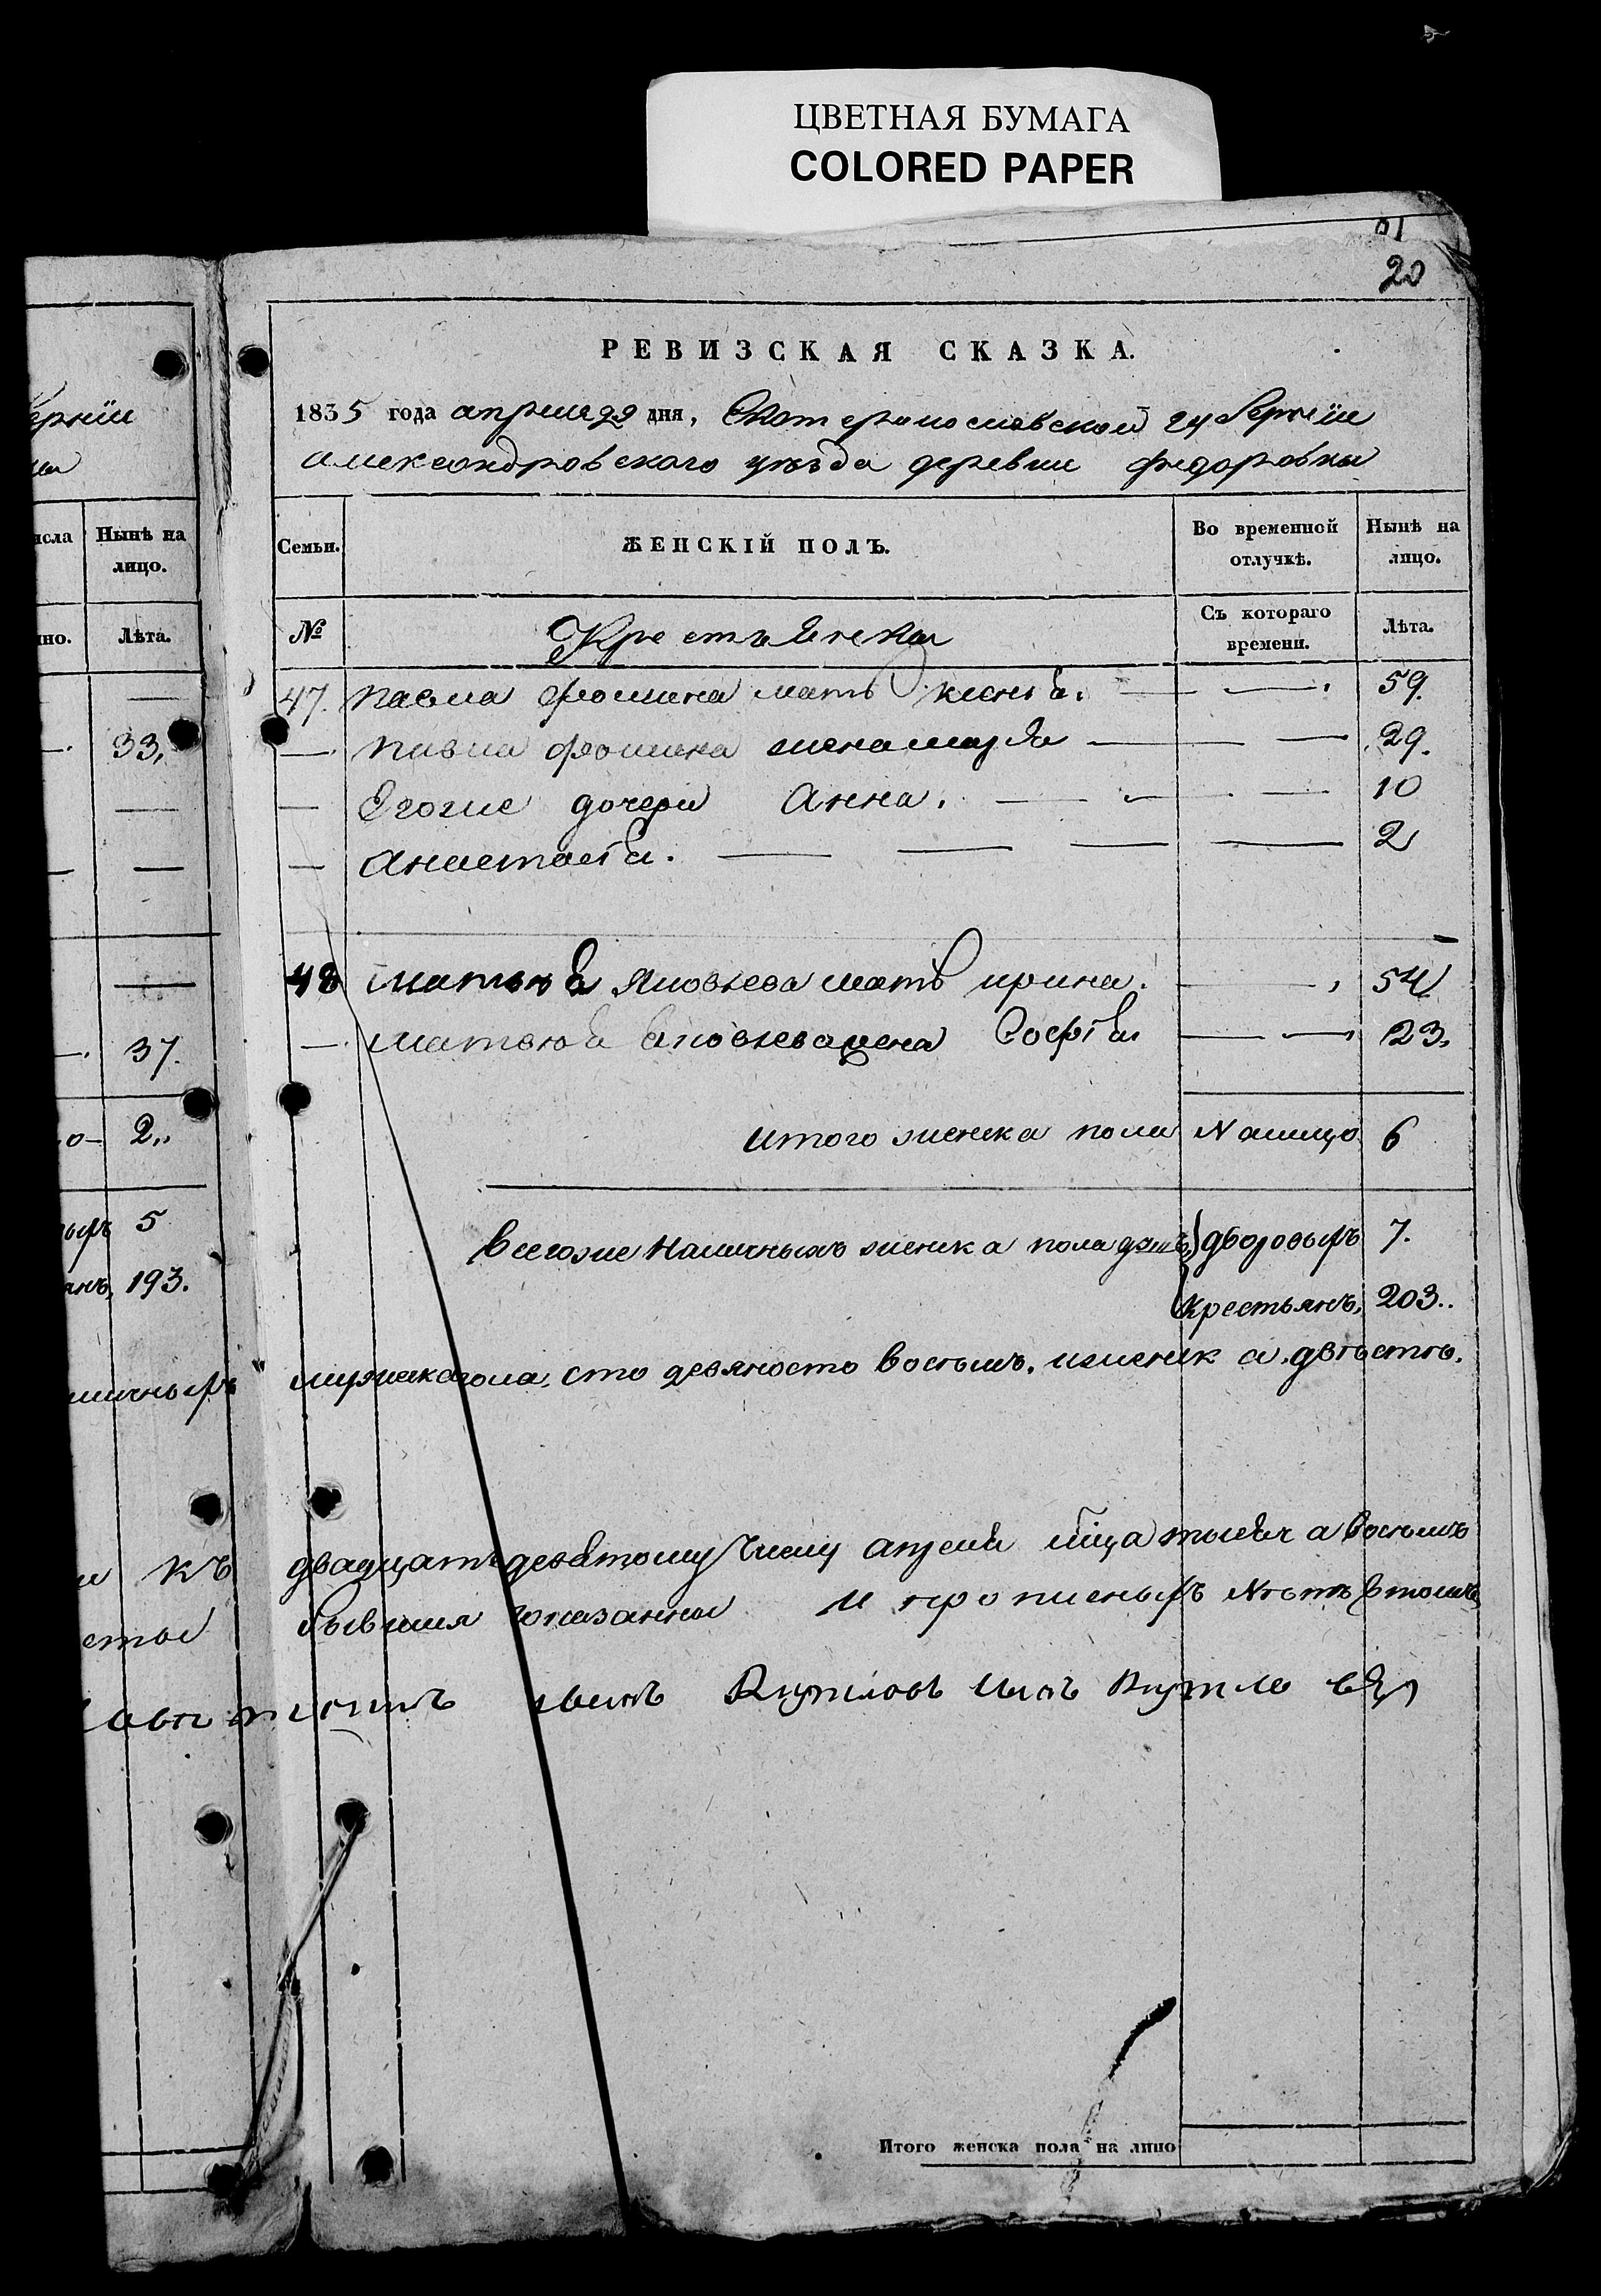 ЦВЕТНАЯ БУМАГА
COLORED PAPER
20
РЕВИЗСКАЯ СКАЗКА.
1835 года апреля 29 дня, Екатеринославской губернїи
александровского уѣзда деревни федоровки
исла
Нынѣ на лицо.
Семьи.
ЖЕНСКІЙ ПОЛЪ.
Во временной отлучкѣ.
Нынѣ на лицо.
Лѣта.
№
Крестьянски
Съ котораго времени.
Лѣта.
47. павла фомина мать 59.
33.
— павла фомина жена марья 29.
— Егоже дочери Анна. 10
— анастасїя. 2
48 матвея яковлева мать ирина. 54
37.
— матвея яковлева жена Софїя 23.
2
итого женска пола Налицо 6
5
всегоже наличныхъ женска пола душъ дворовыхъ 7.
193.
крестьянъ, 203..
мужска пола, сто девяносто восемь, иженска, двѣсти,
къ двадцать девятому числу апреля мца тысяча восемь
бывшия показанны и прописныхъ Нѣтъ втомъ
Итого женска пола на лицо